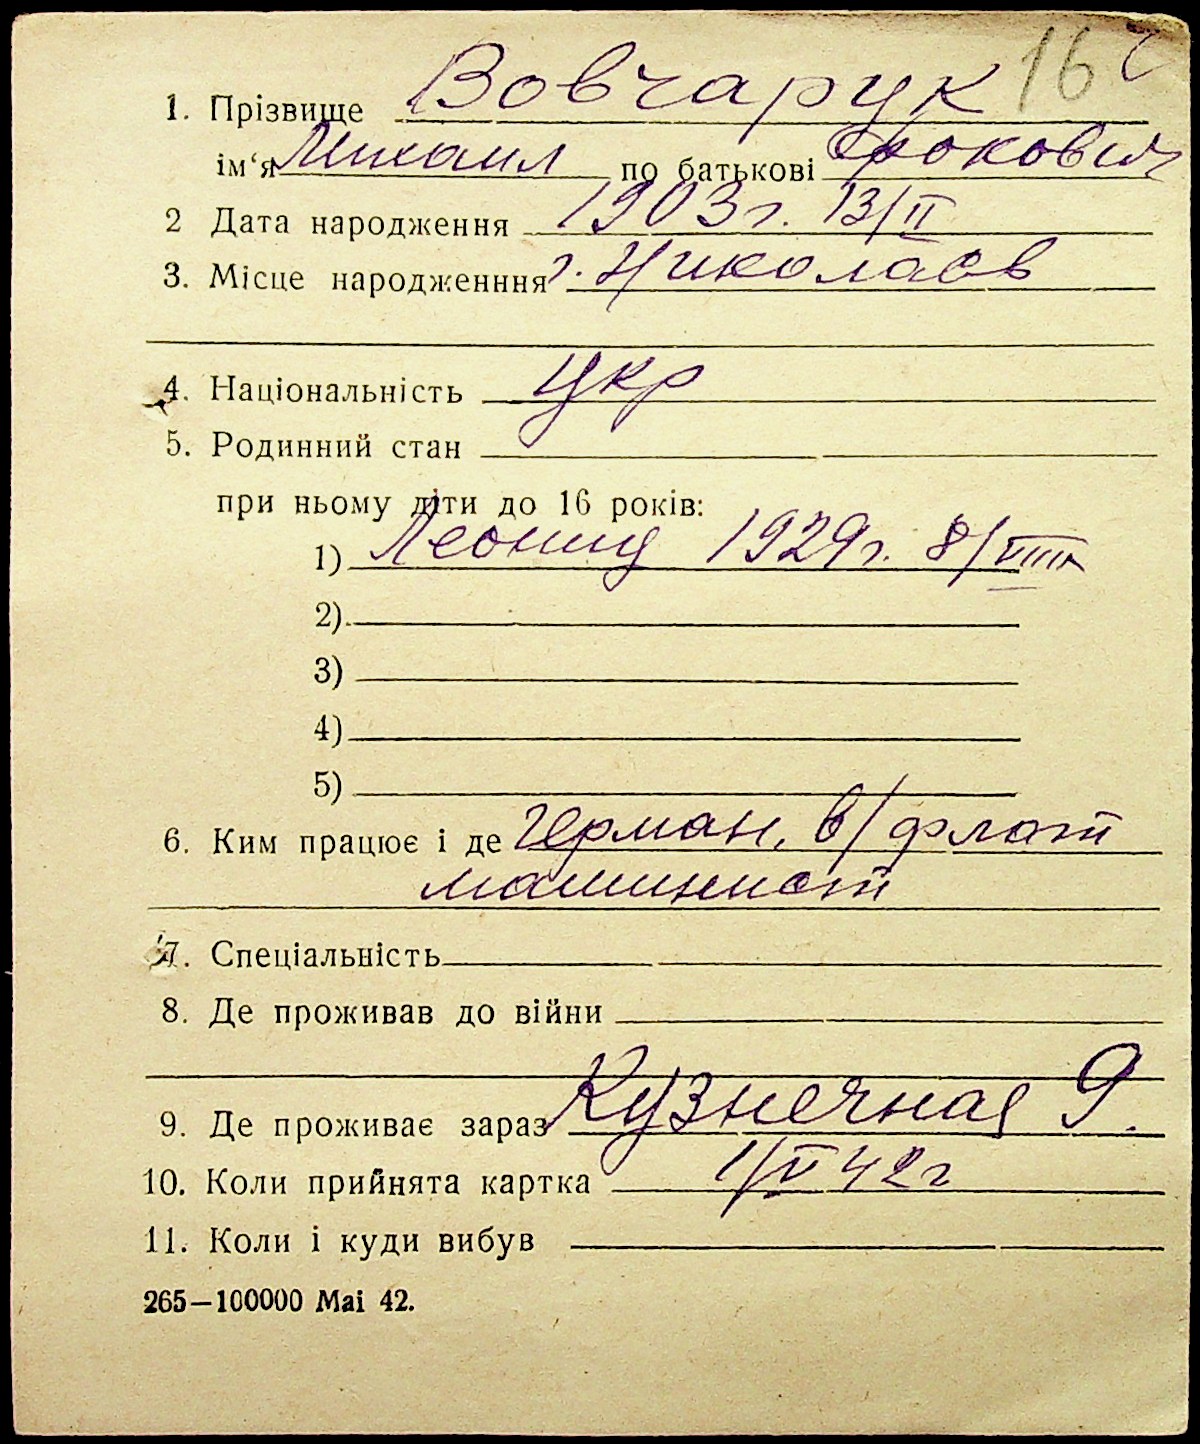 16
1. Прізвище Вовчарук
ім‘я Михаил по батькові Фокович
2 Дата народження 1903 г. 13/II
3. Місце народженння г. Николаев
4. Національність Укр
5. Родинний стан
при ньому діти до 16 років:
1) Леонид 1929 г. 8/VIII
2)
3)
4)
5)
6. Ким працює і де герман. в/флот
машинист
7. Спеціальність
8. Де проживав до війни
9. Де проживає зараз Кузнечная 9.
10. Коли прийнята картка 1/V 42 г
11. Коли і куди вибув
265—100000 Mai 42.